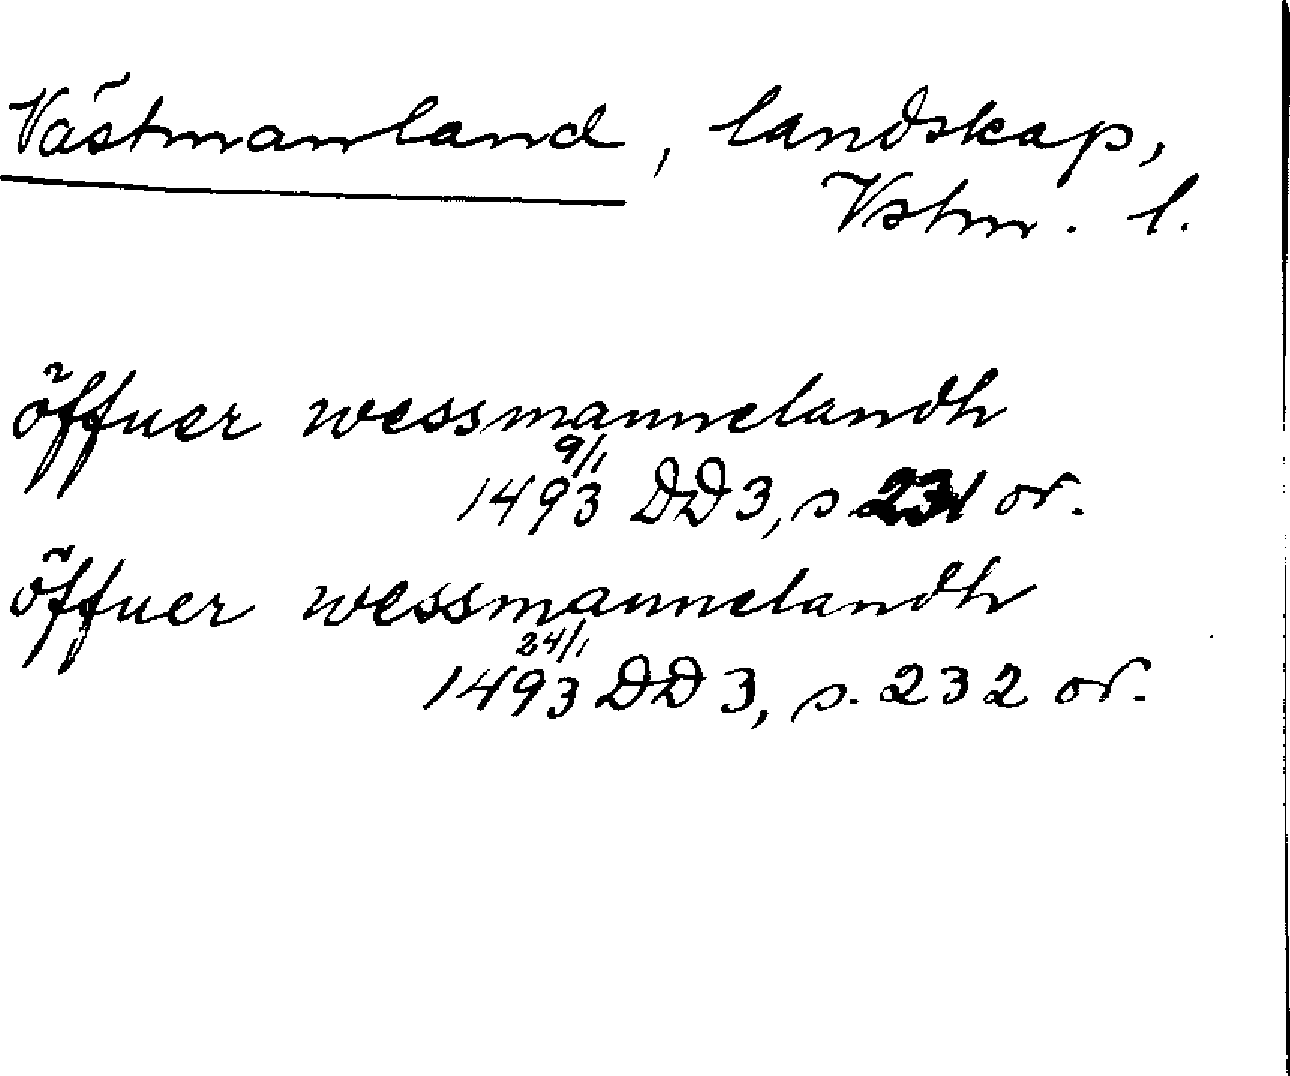 Västmanland, landskap,
Vstm. l.
öffuer wessmannelandh
9/1
1493 DD 3, s 231 or.
öffuer wessmannelandh
24/1
1493 DD 3, s. 232 or.